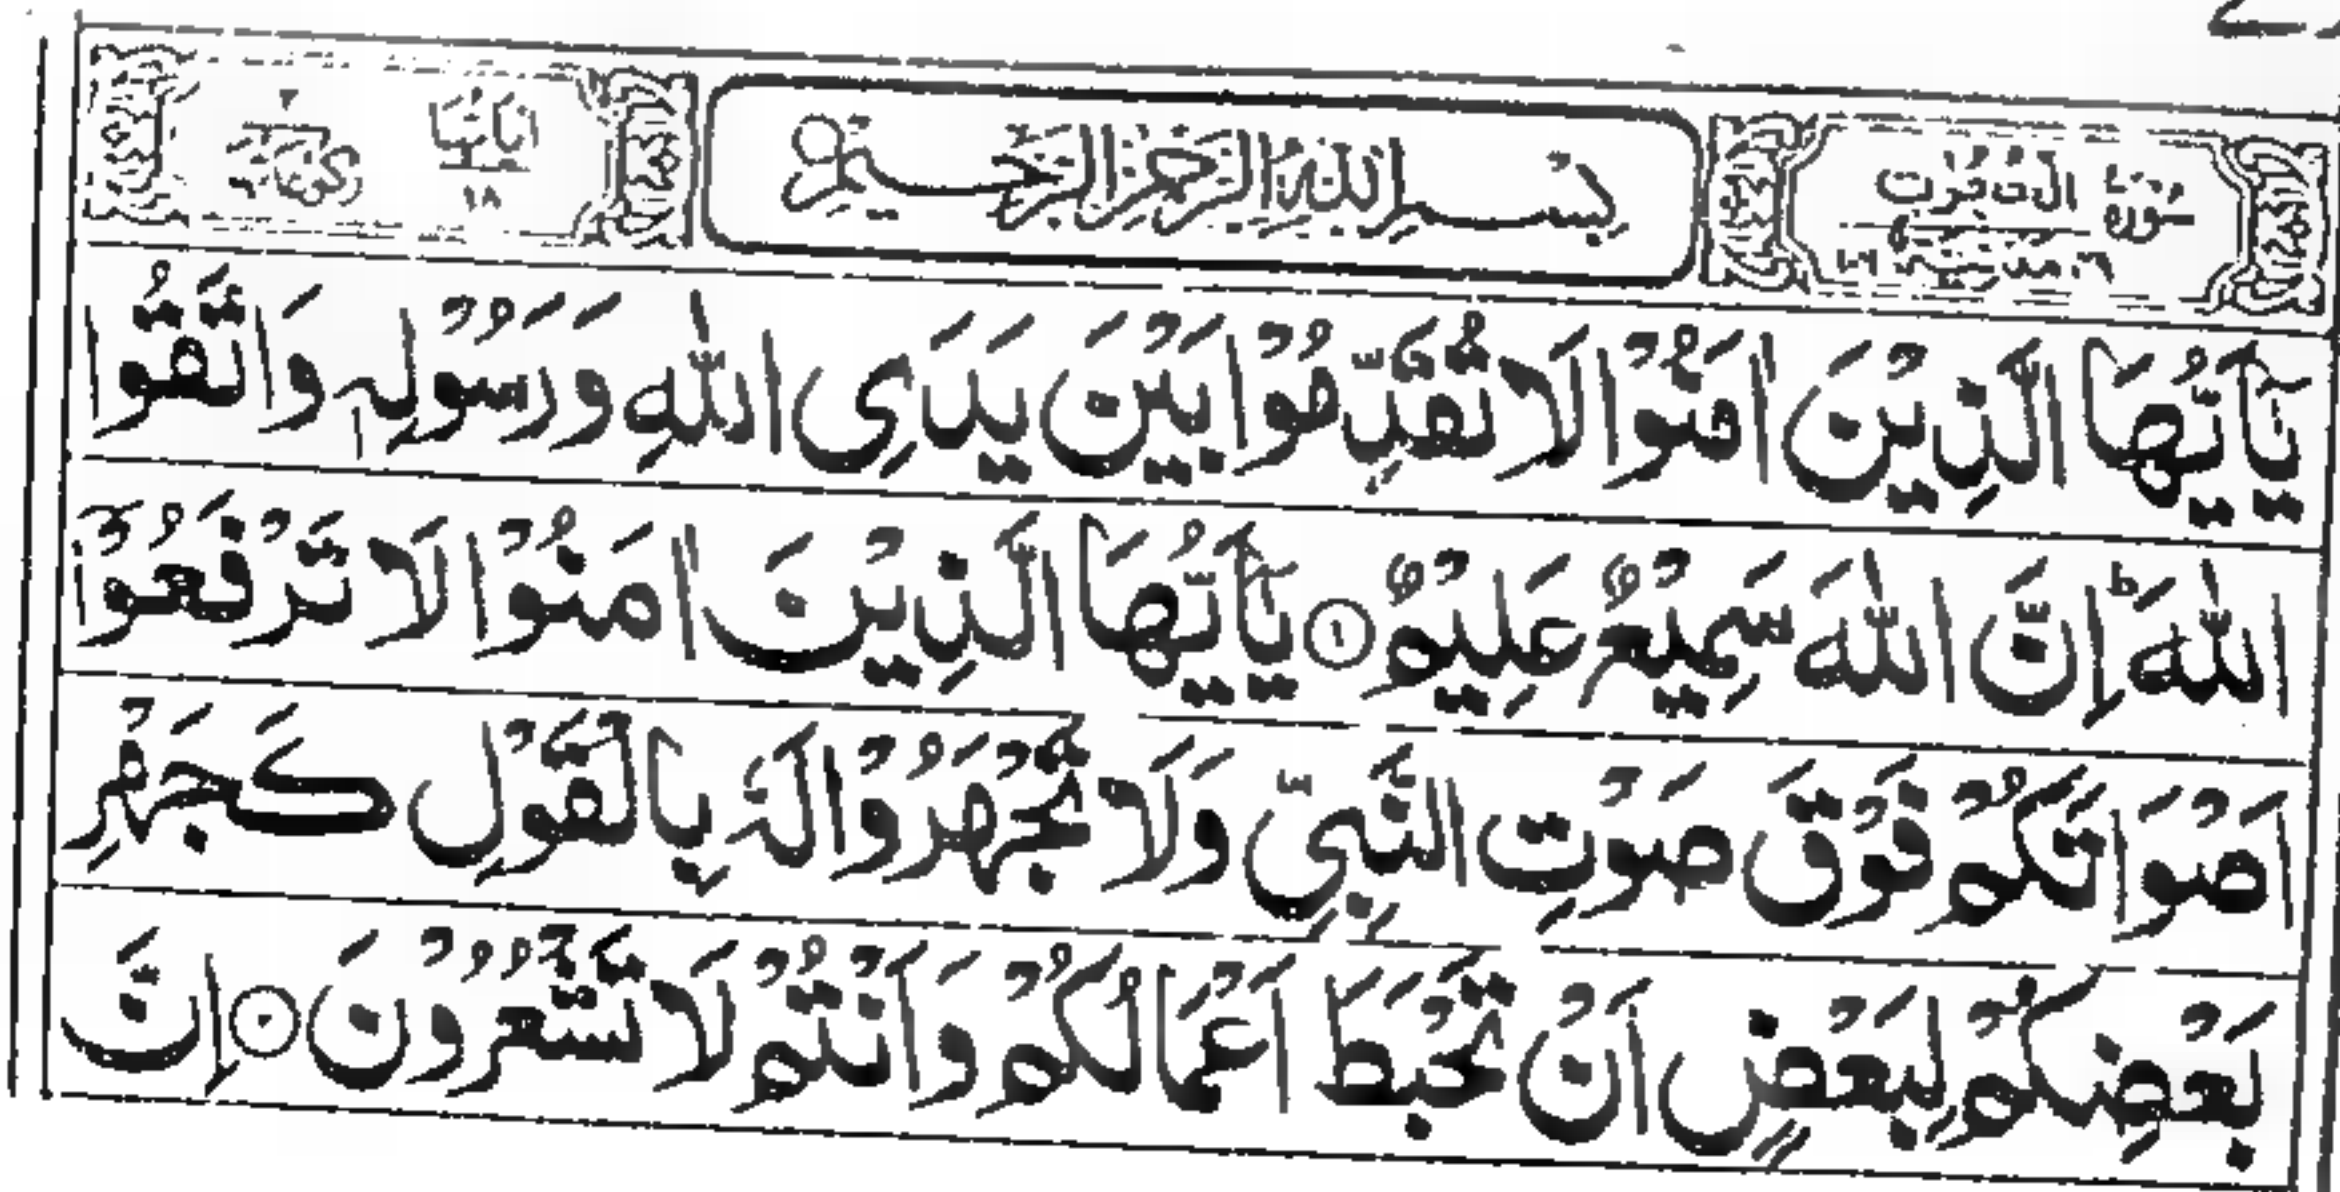 سورة الحجرت مدنية بسم الله الرحمن الرحيم اياتها ١٨ ركوعاتها ٢
يٰٓاَيُّهَا الَّذِيْنَ اٰمَنُوْا لَا تُقَدِّمُوْا بَيْنَ يَدَيِ اللّٰهِ وَرَسُوْلِهٖ وَاتَّقُوا
اللّٰهَ ؕ اِنَّ اللّٰهَ سَمِيْعٌ عَلِيْمٌ ۝۱ يٰٓاَيُّهَا الَّذِيْنَ اٰمَنُوْا لَا تَرْفَعُوْٓا
اَصْوَاتَكُمْ فَوْقَ صَوْتِ النَّبِيِّ وَلَا تَجْهَرُوْا لَهٗ بِالْقَوْلِ كَجَهْرِ
بَعْضِكُمْ لِبَعْضٍ اَنْ تَحْبَطَ اَعْمَالُكُمْ وَاَنْتُمْ لَا تَشْعُرُوْنَ ۝۲ اِنَّ